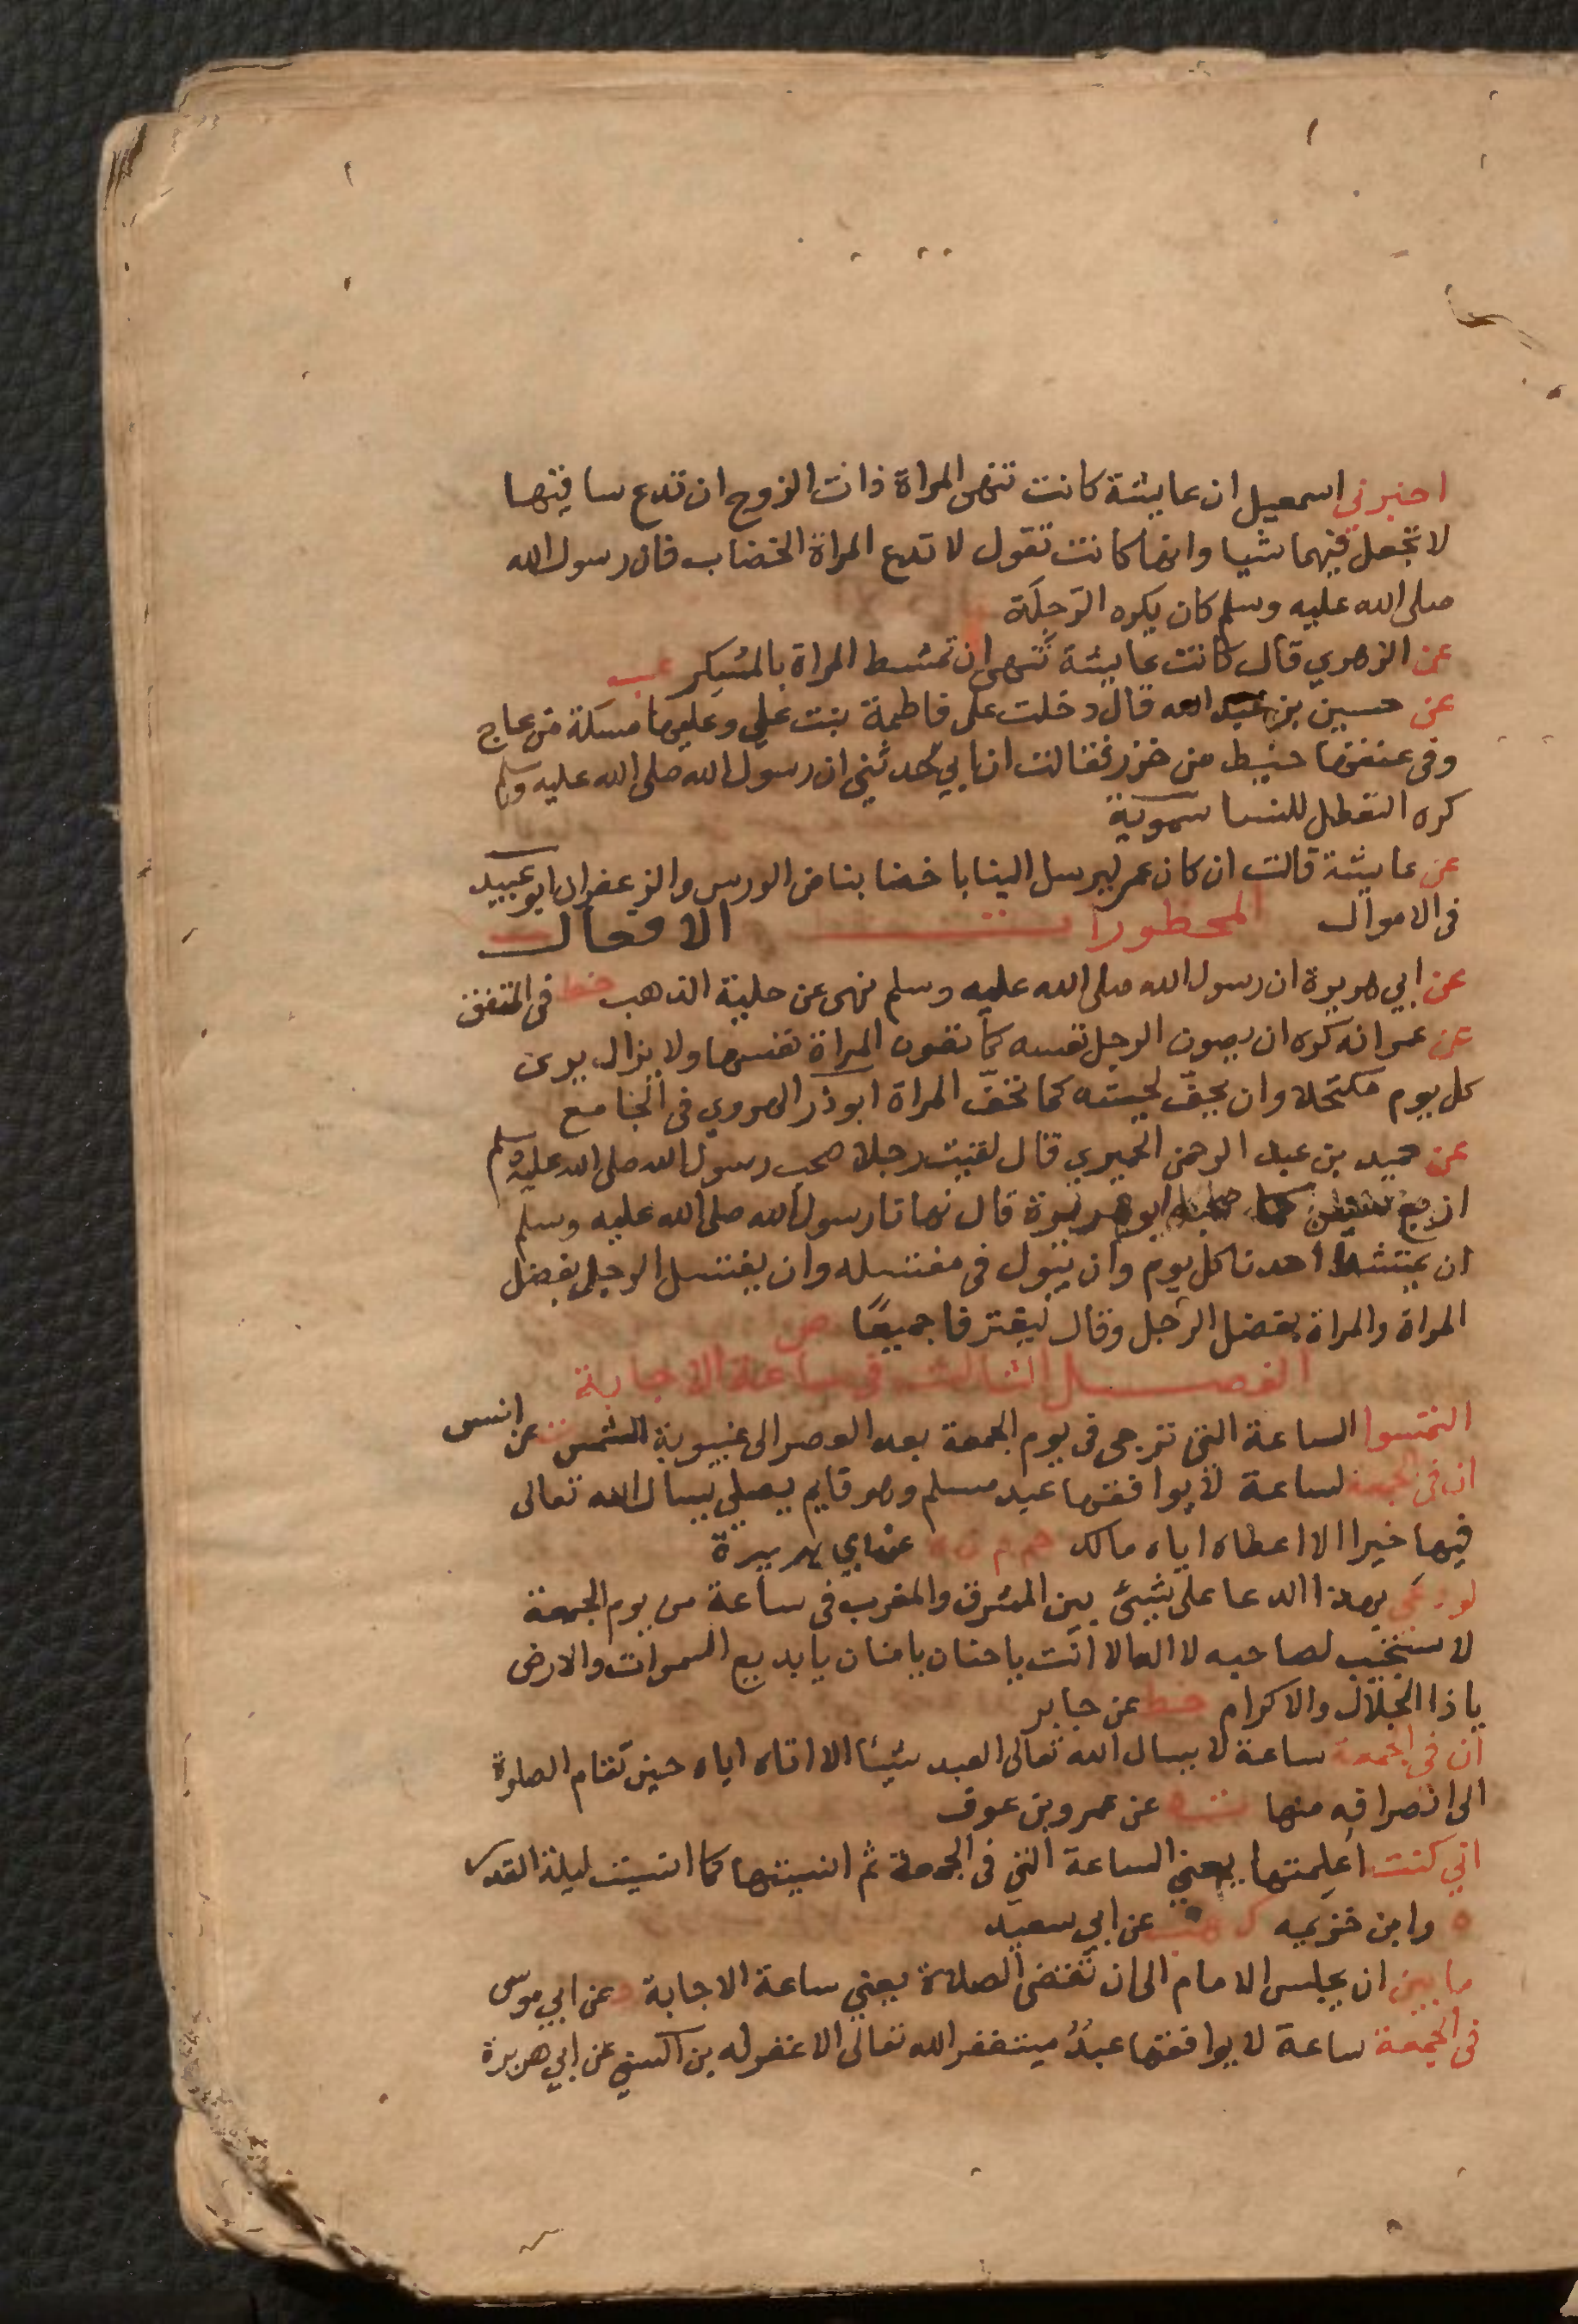 اخبرني اسمعيل ان عايشة كانت تنهى المراة ذات الزوج ان تدع ساقيها
لا تجعل فيهما شيا وانها كانت تقول لا تدع المراة الخضاب فان رسول الله
صلى الله عليه وسلم كان يكره الرَجِلَة
عن الزهري قال كانت عايشة تنهى ان تمتشط المراة بالمسكر عب
عن حسين بن عبد الله قال دخلت على فاطمة بنت علي وعليها مسكة من عاج
وفى عنقها خيط من خزر فقالت ان ابي حدثني ان رسول الله صلى الله عليه وسلم
كره التعطل للنسا سموية
عن عايشة قالت ان كان عمر ليرسل الينا باخضابنا من الورس والزعفران ابو عبيد
فى الاموال المحظورات الافعال
عن ابي هريرة ان رسول الله صلى الله عليه وسلم نهى عن حلية الذهب خط فى المتفق
عن عمر انه كره ان يصون الرجل نفسه كما تصون المراة نفسها ولا يزال يرى
كل يوم مكتحلا وان يحفّ لحيته كما تحفّ المراة ابو ذر الهروي فى الجامع
عن حميد بن عبد الرحمن الحميري قال لقيت رجلا صحب رسول الله صلى الله عليه وسلم
اربع سنين كما صحبه ابو هريرة قال نهانا رسول الله صلى الله عليه وسلم
ان يمتشط احدنا كل يوم وان يبول فى مغتسله وان يغتسل الرجل بفضل
المراة والمراة بفضل الرجل وقال ليغترفا جميعًا ص
الفصل الثالث فى ساعة الاجابة
التمسوا الساعة التي ترجى فى يوم الجمعة بعد العصر الى غيبوبة الشمس ت عن انس
ان فى الجمعة لساعة لا يوافقها عبد مسلم وهو قايم يصلي يسال الله تعالى
فيها خيرا الا اعطاه اياه مالك حم م ن ه عن ابي هريرة
لو دعى بهذا الدعا على شيئ بين المشرق والمغرب فى ساعة من يوم الجمعة
لاستجيب لصاحبه لا اله الا انت يا حنان يا منان يا بديع السموات والارض
يا ذا الجلال والاكرام خط عن جابر
ان فى الجمعة ساعة لا يسال الله تعالى العبد شيئا الا اتاه اياه حين تقام الصلوة
الى انصرافه منها ت ه عن عمرو بن عوف
اني كنت اُعلِمتها يعني الساعة التي فى الجمعة ثم انسيتها كما انسيت ليلة القدر
ه وابن خزيمه ك هب عن ابي سعيد
ما بين ان يجلس الامام الى ان تقضى الصلاة يعني ساعة الاجابة د عن ابي موسى
فى الجمعة ساعة لا يوافقها عبدٌ يستغفر الله تعالى الا غفر له بن السني عن ابي هريرة